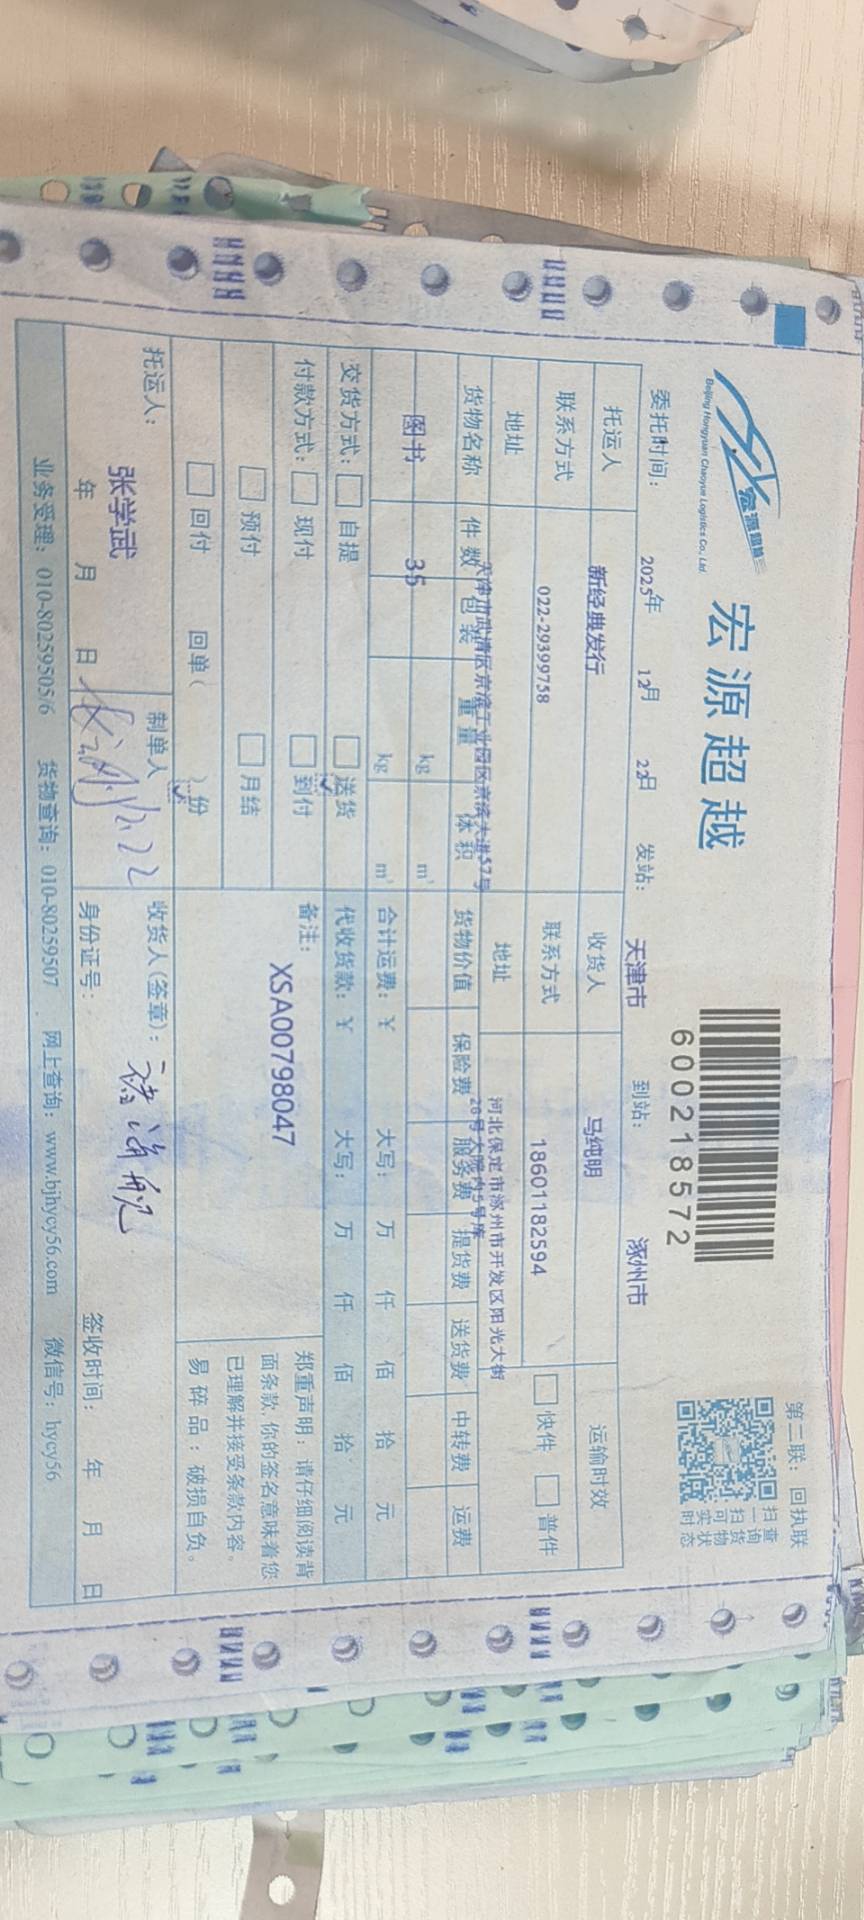 宏源超越
Beijing Hongyuan Chaoyue Logistics Co., Ltd.
宏源超越
600218572
第二联：回执联
扫一扫可查询货物实时状态
委托时间： 2025年 12月 22日 发站： 天津市 到站： 涿州市
托运人 新经典发行 收货人 马纯明 运输时效
联系方式 022-29399758 联系方式 18601182594 快件 普件
地址 天津市武清区京滨工业园区京滨大道57号 地址 河北保定市涿州市开发区阳光大街
28号大院内5号库
货物名称 件数 包装 重量 体积 货物价值 保险费 服务费 提货费 送货费 中转费 运费
图书 35 kg m³
kg m³ 合计运费：￥ 大写： 万 仟 佰 拾 元
交货方式： 自提 送货 代收货款：￥ 大写： 万 仟 佰 拾 元
付款方式： 现付 到付 备注：
预付 月结 XSA00798047
回付 回单（ ）份
郑重声明：请仔细阅读背
面条款，你的签名意味着您
已理解并接受条款内容。
易碎品：破损自负。
托运人： 张学武 制单人 收货人（签章）：
年 月 日 12.22 身份证号： 签收时间： 年 月 日
业务受理：010-80259505/6 货物查询：010-80259507 网上查询：www.bjhycy56.com 微信号：hycy56